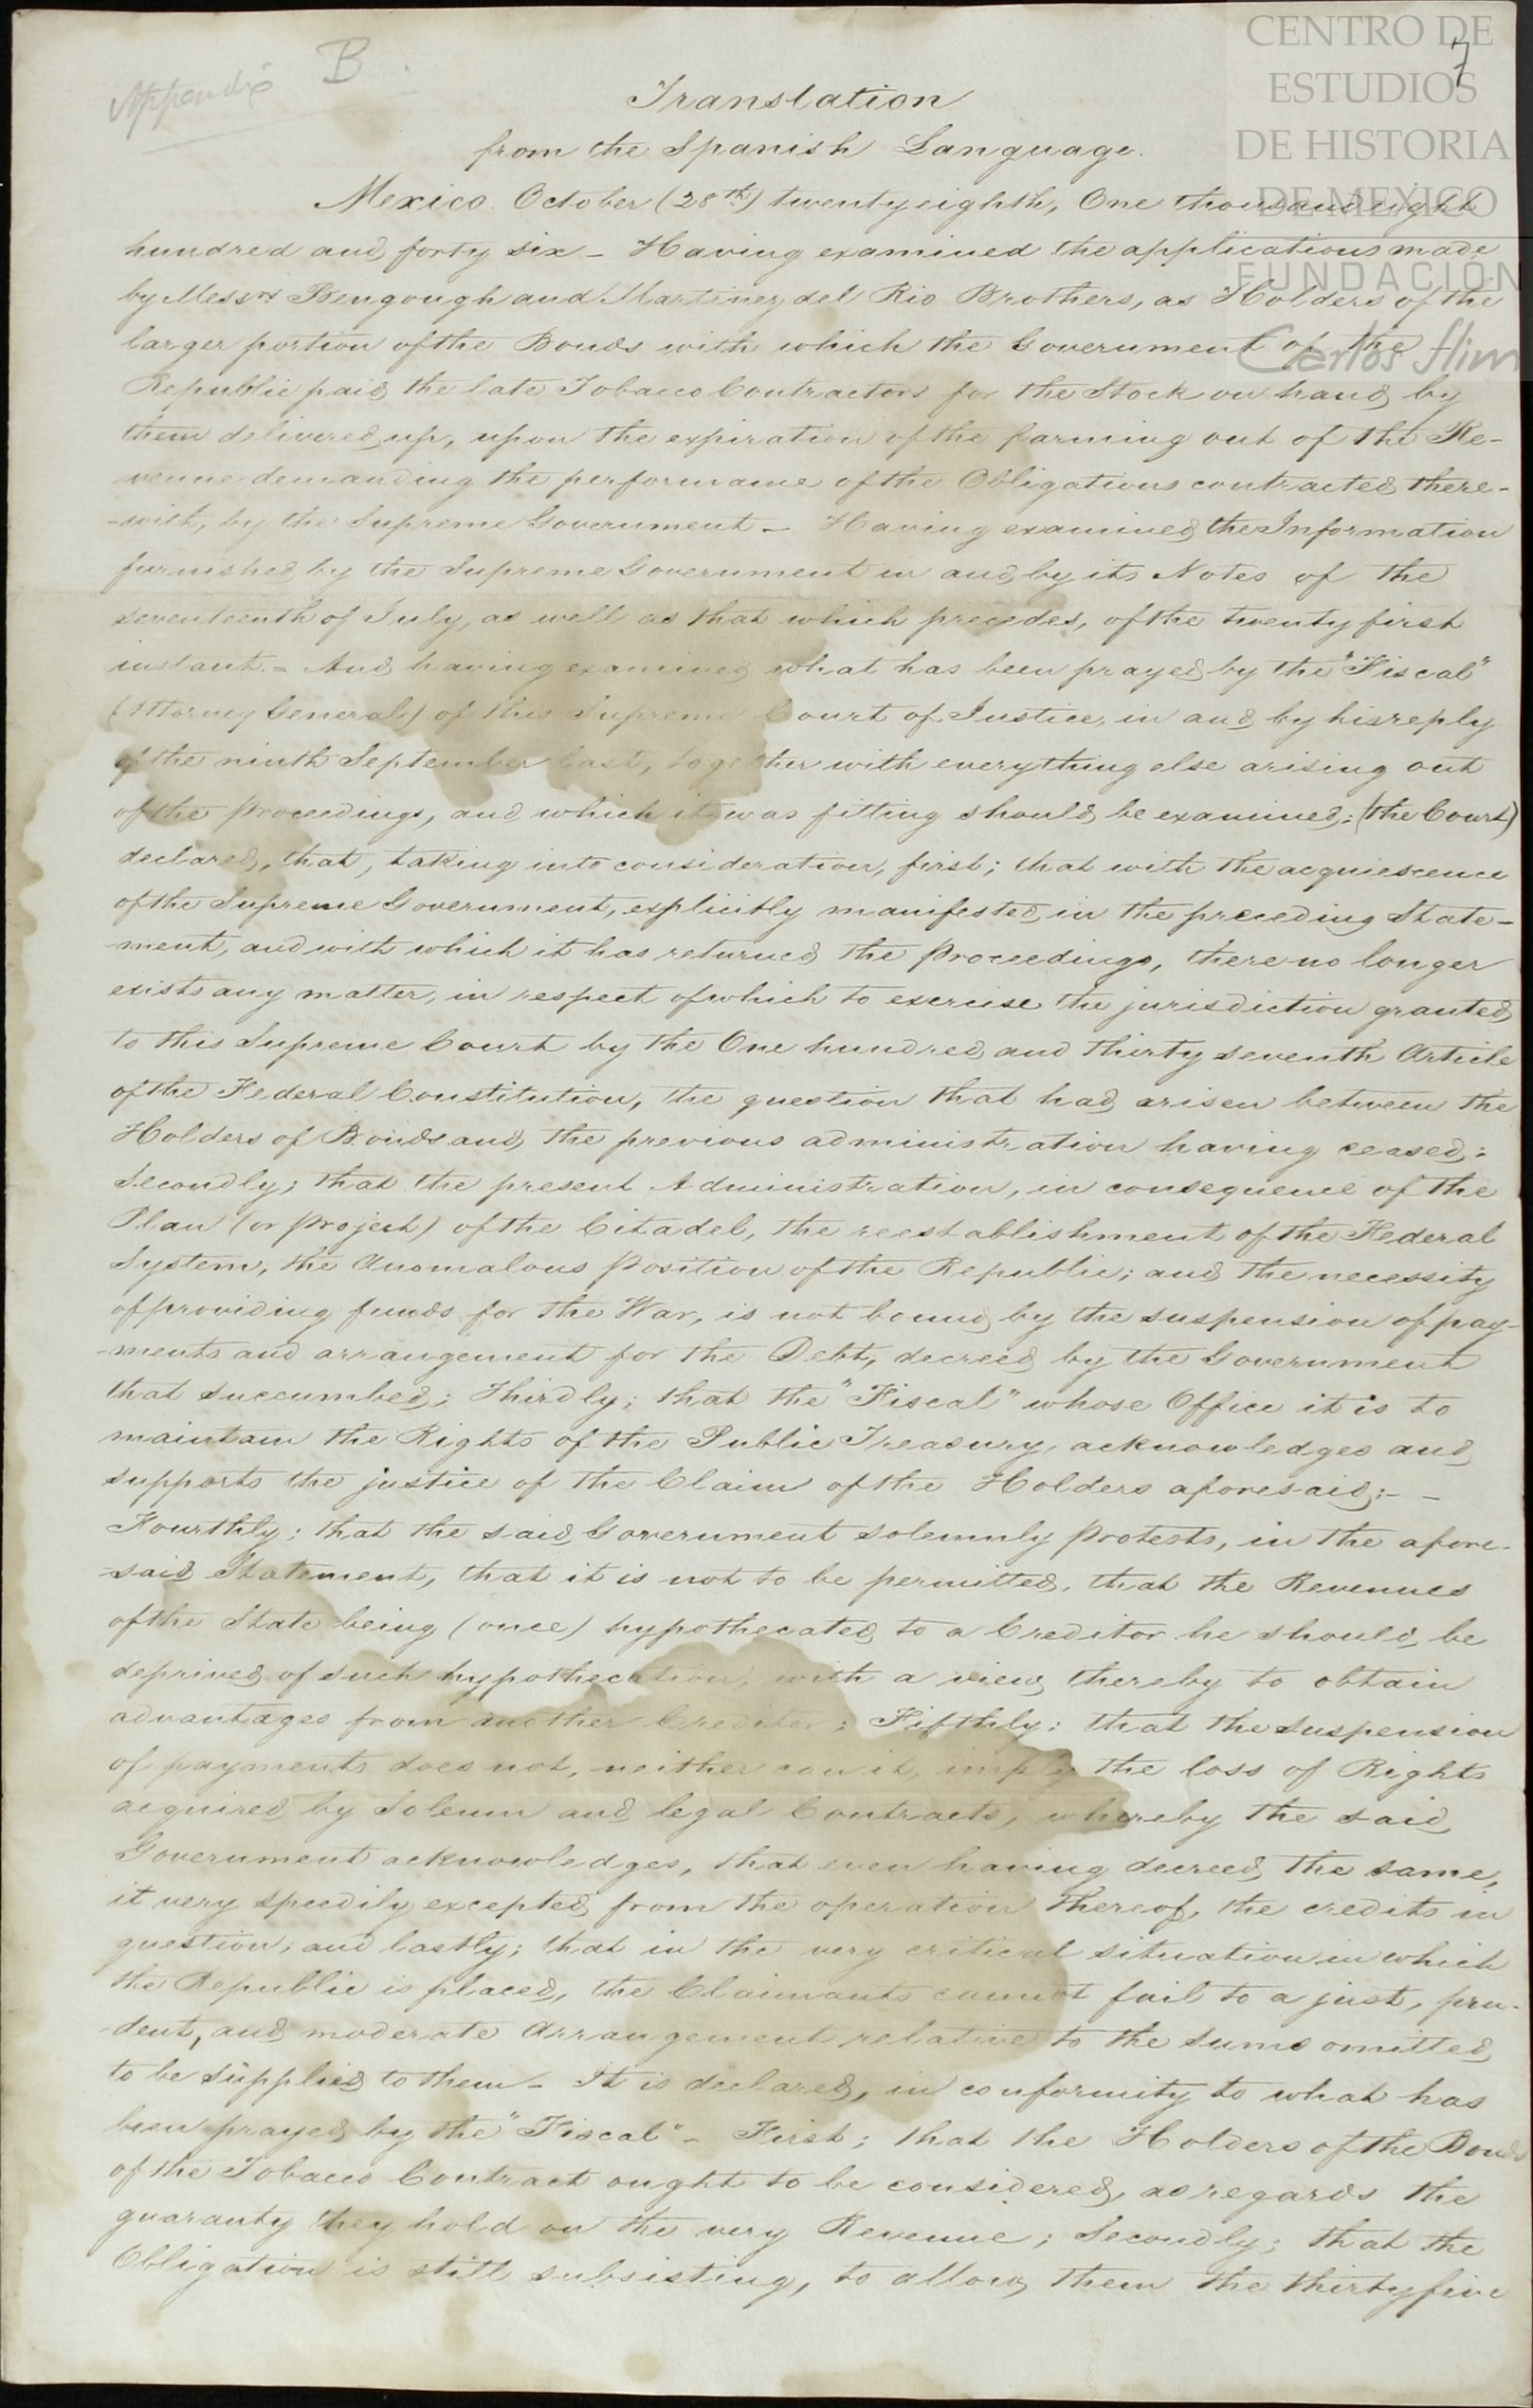 Appendix B.
7
CENTRO DE
ESTUDIOS
DE HISTORIA
DE MEXICO
FUNDACIÓN
Carlos Slim
Translation
from the Spanish Language.
Mexico. October (28th) twentyeighth, One thousand eight
hundred and forty six - Having examined the applications made
by Messrs Bengough and Martinez del Rio Brothers, as Holders of the
larger portion of the Bonds with which the Government of the
Republic paid the late Tobacco Contractors for the Stock on hand by
them delivered up, upon the expiration of the farming out of the Re-
venue demanding the performance of the Obligations contracted there-
-with, by the Supreme Government - Having examined the Information
furnished by the Supreme Government in and by its Notes of the
seventeenth of July, as well as that which precedes, of the twenty first
instant. - And having examined what has been prayed by the "Fiscal"
(Attorney General) of this Supreme Court of Justice, in and by his reply
of the ninth September last, together with everything else arising out
of the Proceedings, and which it was fitting should be examined: (the Court)
declared, that, taking into consideration, first; that with the acquiescence
of the Supreme Government, explicitly manifested in the preceding State-
-ment, and with which it has returned the Proceedings, there no longer
exists any matter, in respect of which to exercise the jurisdiction granted
to this Supreme Court by the One hundred and thirty seventh Article
of the Federal Constitution, the question that had arisen between the
Holders of Bonds and the previous administration having ceased:
Secondly; that the present Administration, in consequence of the
Plan (or project) of the Citadel, the reestablishment of the Federal
System, the Anomalous Position of the Republic; and the necessity
of providing funds for the War, is not bound by the suspension of pay-
-ments and arrangement for the Debt, decreed by the Government
that succumbed; Thirdly; that the "Fiscal" whose Office it is to
maintain the Rights of the Public Treasury, acknowledges and
supports the justice of the Claim of the Holders aforesaid: -
Fourthly; that the said Government solemnly protests, in the afore-
-said Statement, that it is not to be permitted, that the Revenues
of the State being (once) hypothecated to a Creditor he should be
deprived of such hypothecation, with a view thereby to obtain
advantages from another Creditor; Fifthly: that the suspension
of payments does not, neither can it, imply the loss of Rights
acquired by Solemn and legal Contracts, whereby the said
Government acknowledges, that even having decreed the same,
it very speedily excepted from the operation thereof, the credits in
question; and lastly; that in the very critical situation in which
the Republic is placed, the Claimants cannot fail to a just, pru-
-dent, and moderate Arrangement relative to the sums omitted
to be supplied to them - It is declared, in conformity to what has
been prayed by the "Fiscal" - First; that the Holders of the Bonds
of the Tobacco Contract ought to be considered, as regards the
guaranty they hold on the very Revenue; Secondly; that the
Obligation is still subsisting, to allow them the thirtyfive